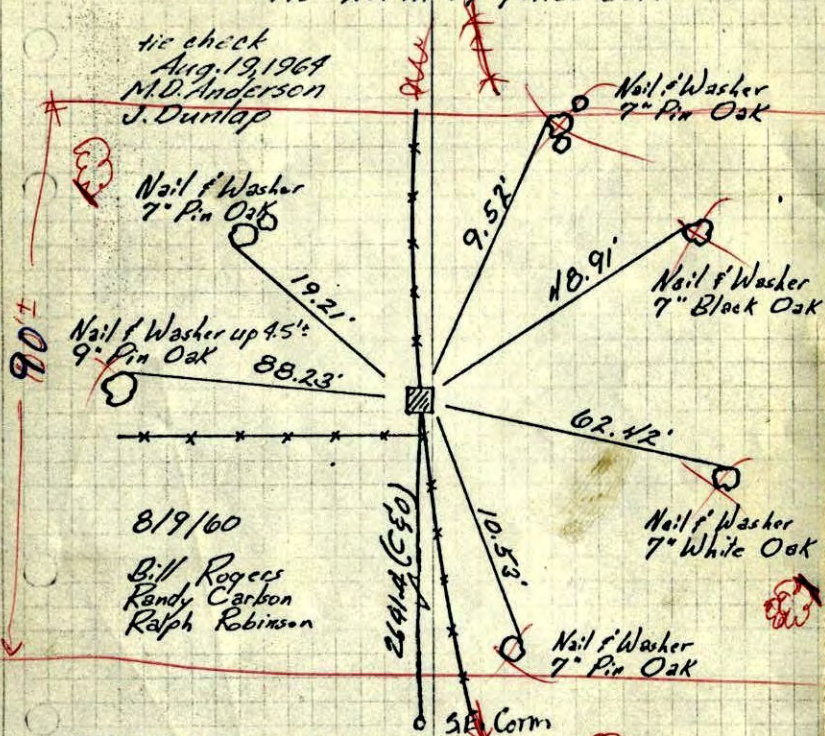 tie check
Aug. 19, 1964
M.D. Anderson
J. Dunlap
Nail & Washer
7" Pin Oak
Nail & Washer
7" Pin Oak
9.52'
19.21'
48.91'
Nail & Washer
7" Black Oak
90'±
Nail & Washer up 4.5'±
9" Pin Oak
88.23'
62.42'
8/9/60
Bill Rogers
Randy Carlson
Ralph Robinson
2641.4 (C&O)
10.53'
Nail & Washer
7" White Oak
Nail & Washer
7" Pin Oak
S.E. Corn